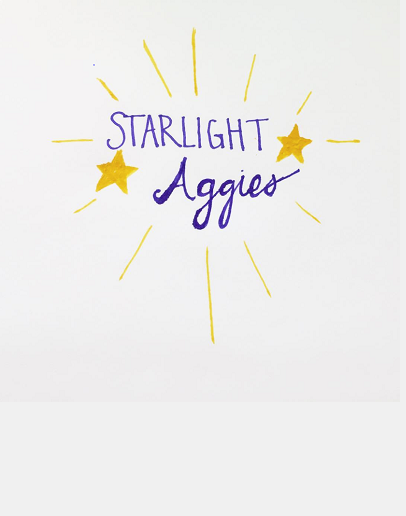 STARLIGHT
Aggies